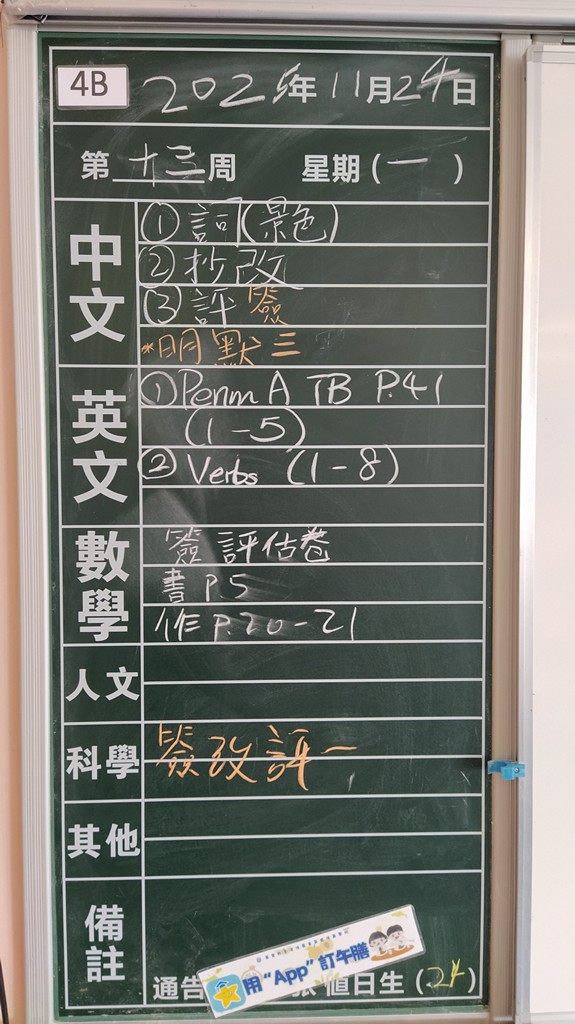 4B
2025年11月24日
第十三周 星期(一)
中文
①詞(景色)
②抄改
③評簽
*明默三
英文
①Penm A TB P.41
(1-5)
②Verbs (1-8)
數學
簽評估卷
書P5
作P.20-21
人文
科學
簽改評一
其他
備註
用“App”訂午膳
通告 值日生(24)